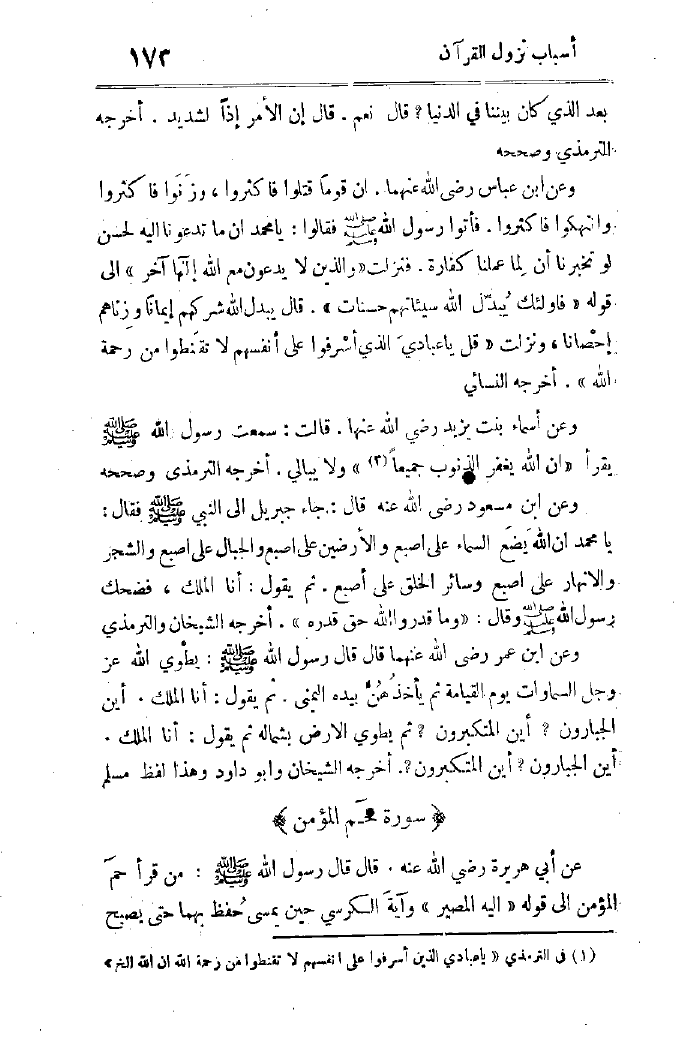 أسباب نزول القرآن ١٧٣
بعد الذي كان بيننا في الدنيا؟ قال نعم. قال إن الأمر إذاً لشديد. أخرجه
الترمذي وصححه
وعن ابن عباس رضى الله عنهما. ان قوماً قتلوا فاكثروا، وزَنَوا فاكثروا
وانتهكوا فاكثروا. فأتوا رسول الله ﷺ فقالوا: يامحمد ان ما تدعونا اليه لحسن
لو تخبرنا أن لِما عملنا كفارة. فنزلت «والذين لا يدعون مع الله إلَهاً آخر» الى
قوله «فاولئك يُبدّل الله سيئاتهم حسنات». قال يبدل الله شركهم إيماناً وزناهم
إحْصانا، ونزلت «قل ياعباديَ الذي أسْرفوا على أنفسهم لا تقنَطوا من رحمة
الله». أخرجه النسائي
وعن أسماء بنت يزيد رضي الله عنها. قالت: سمعت رسول الله ﷺ
يقرأ «ان الله يغفر الذنوب جميعاً (٣)» ولا يبالي. أخرجه الترمذى وصححه
وعن ابن مسعود رضى الله عنه قال: جاء جبريل الى النبي ﷺ فقال:
يا محمد ان الله يَضَع السماء على اصبع والأرضين على اصبع والجبال على اصبع والشجر
والانهار على اصبع وسائر الخلق على أصبع. ثم يقول: أنا الملك، فضحك
رسول الله ﷺ وقال: «وما قدروا الله حق قدره». أخرجه الشيخان والترمذي
وعن ابن عمر رضى الله عنهما قال قال رسول الله ﷺ: يطْوي الله عز
وجل السماوات يوم القيامة ثم يأخذُهُنّ بيده اليمنى. ثم يقول: أنا الملك. أين
الجبارون؟ أين المتكبرون؟ ثم يطوي الارض بشماله ثم يقول: أنا الملك.
أين الجبارون؟ أين المتكبرون؟. أخرجه الشيخان وابو داود وهذا لفظ مسلم
﴿سورة حم المؤمن﴾
عن أبي هريرة رضي الله عنه. قال قال رسول الله ﷺ: من قرأ حمَ
المؤمن الى قوله «اليه المصير» وآيةَ الكرسي حين يمسى حُفظ بهما حتى يصبح
(١) فى الترمذي «ياعبادي الذين أسرفوا على انفسهم لا تقنطوا من رحمة الله ان الله الخ»